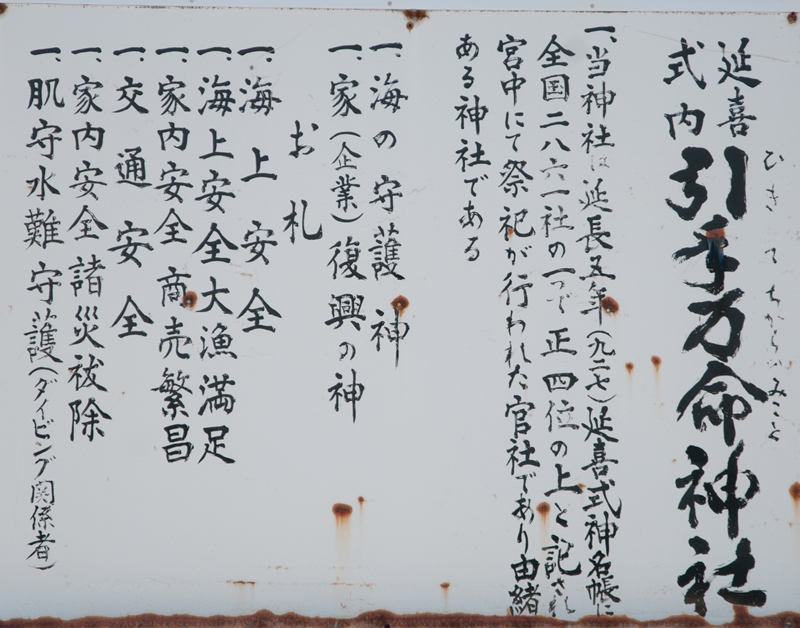 延喜
式内
引手力命神社
ひきてちからのみこと
一、当神社は延長五年(九二七)延喜式神名帳に
全国二八六一社の一つで正四位の上と記され
宮中にて祭祀が行われた官社であり由緒
ある神社である
一、海の守護神
一、家(企業)復興の神
お札
一、海上安全
一、海上安全大漁満足
一、家内安全商売繁昌
一、交通安全
一、家内安全諸災祓除
一、肌守水難守護(ダイビング関係者)